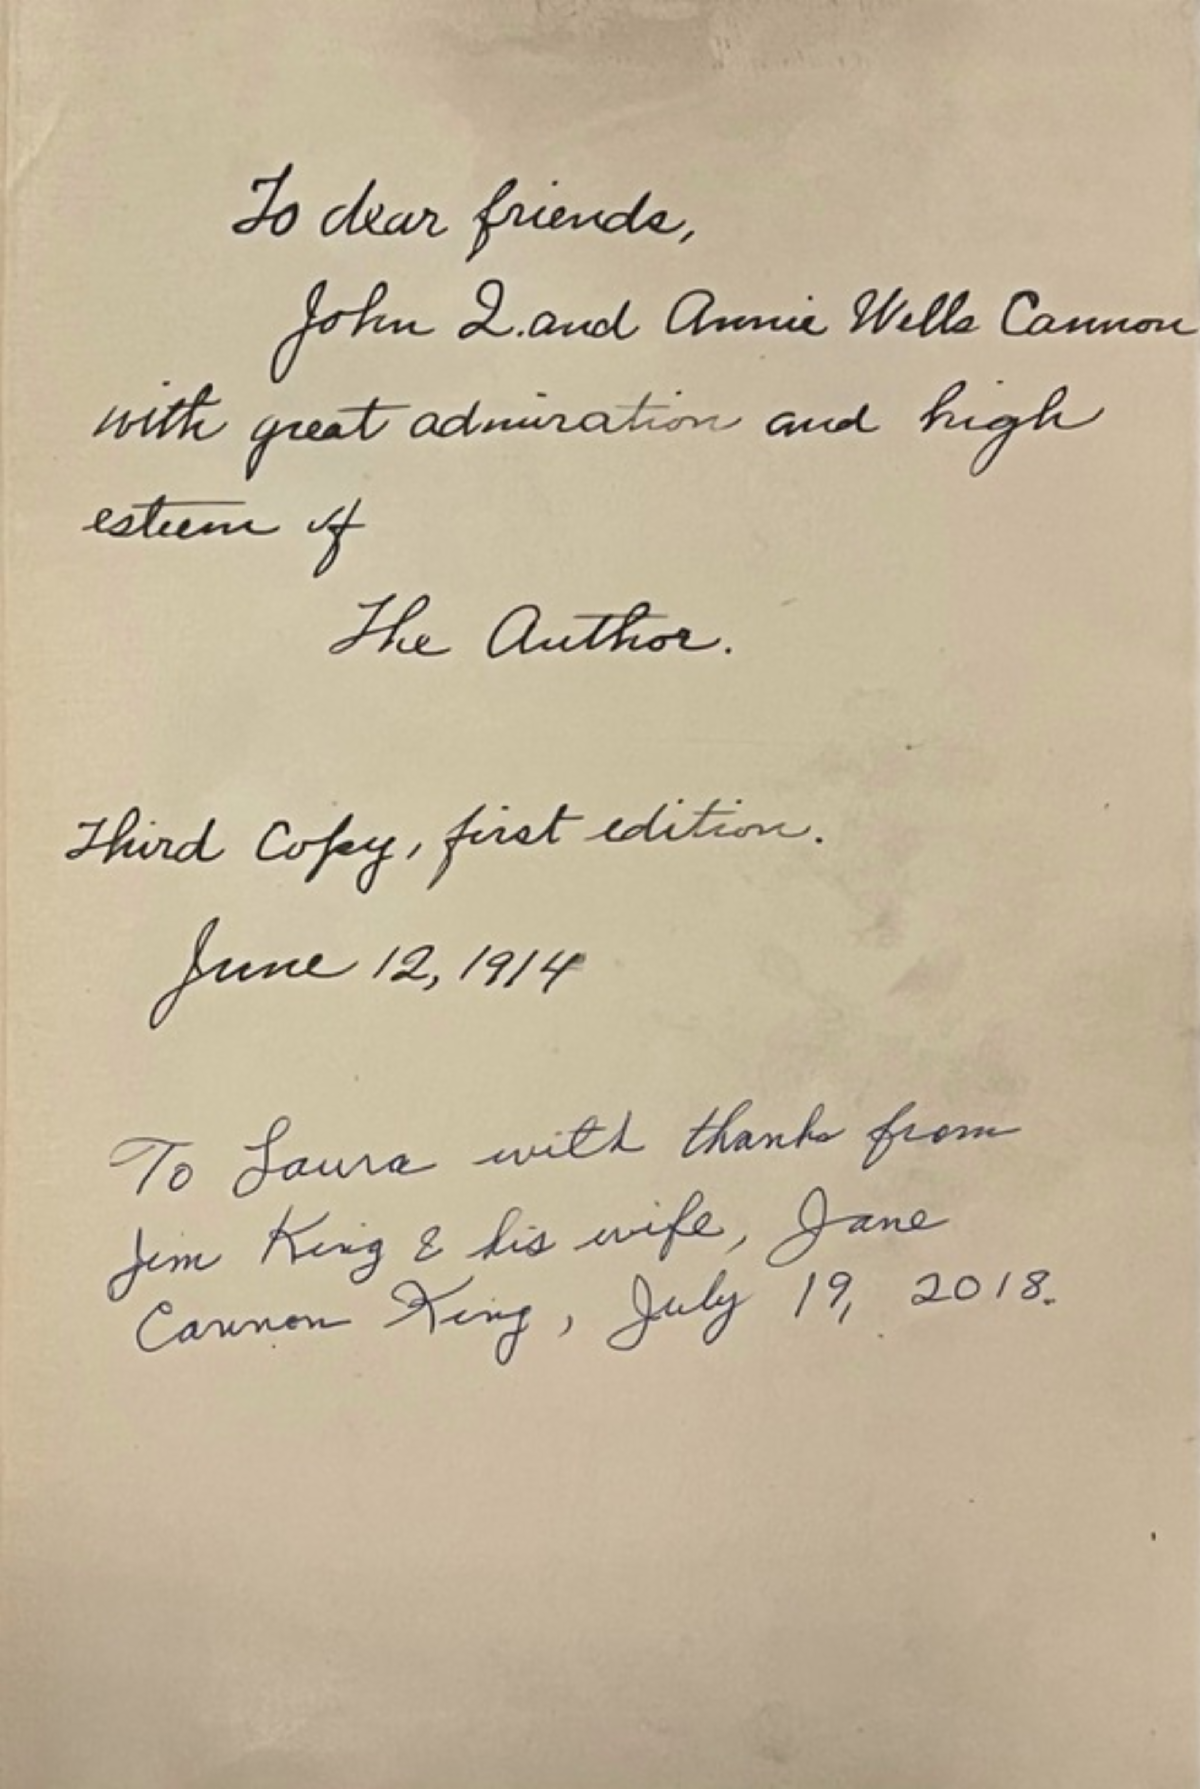 To dear friends,
John Q. and Annie Wells Cannon
with great admiration and high
esteem of
The Author.
Third Copy, first edition.
June 12, 1914
To Laura with thanks from
Jim King & his wife, Jane
Cannon King, July 19, 2018.